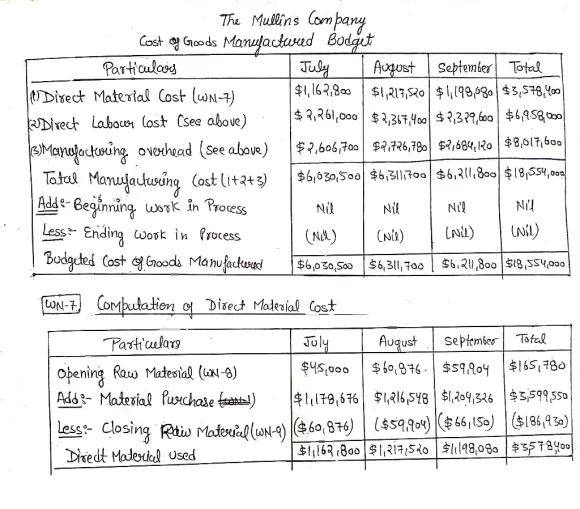 The Mullins Company
Cost of Goods Manufactured Budget
Particulars July August September Total
(1) Direct Material Cost (WN-7) $1,162,800 $1,217,520 $1,198,080 $3,578,400
(2) Direct Labour Cost (see above) $2,261,000 $2,367,400 $2,329,600 $6,958,000
(3) Manufactouring overhead (see above) $2,606,700 $2,726,780 $2,684,120 $8,017,600
Total Manufacturing Cost (1+2+3) $6,030,500 $6,311,700 $6,211,800 $18,554,000
Add:- Beginning work in Process Nil Nil Nil Nil
Less:- Ending work in Process (Nil) (Nil) (Nil) (Nil)
Budgeted Cost of Goods Manufactured $6,030,500 $6,311,700 $6,211,800 $18,554,000
WN-7 Computation of Direct Material Cost
Particulars July August September Total
Opening Raw Material (WN-8) $45,000 $60,876 $59,904 $165,780
Add:- Material Purchase $1,178,676 $1,216,548 $1,204,326 $3,599,550
Less:- Closing Raw Material (WN-9) ($60,876) ($59,904) ($66,150) ($186,930)
Direct Material used $1,162,800 $1,217,520 $1,198,080 $3,578,400